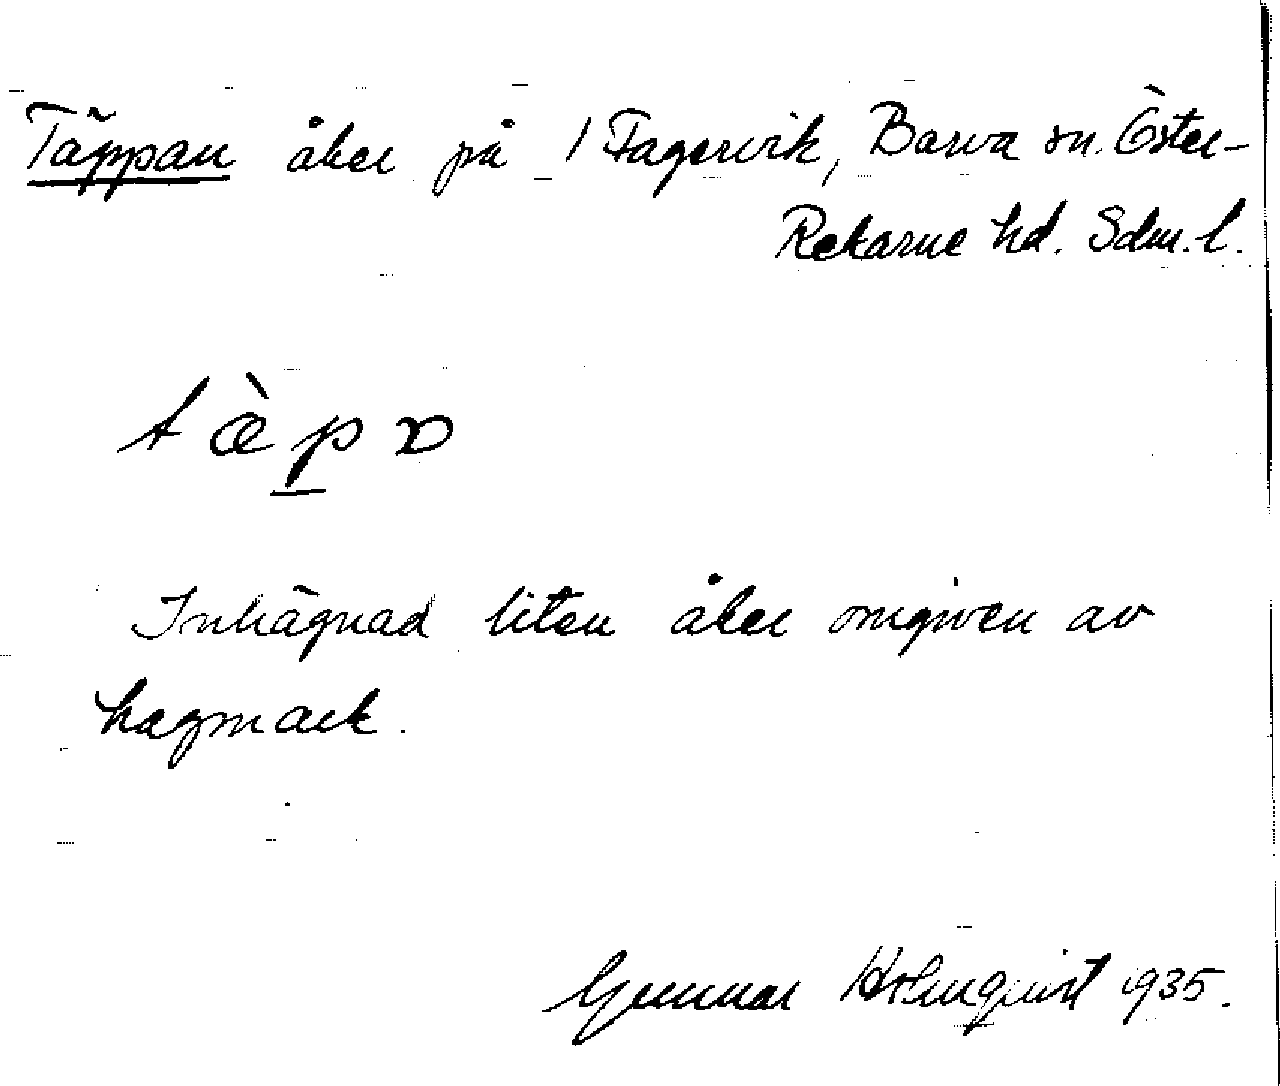 Täppan åker på / Fagervik, Barva sn. Öster-
Rekarne hd. Sdm. l.
tæ̀pɒ
Inhägnad liten åker omgiven av
hagmark.
Gunnar Holmquist 1935.